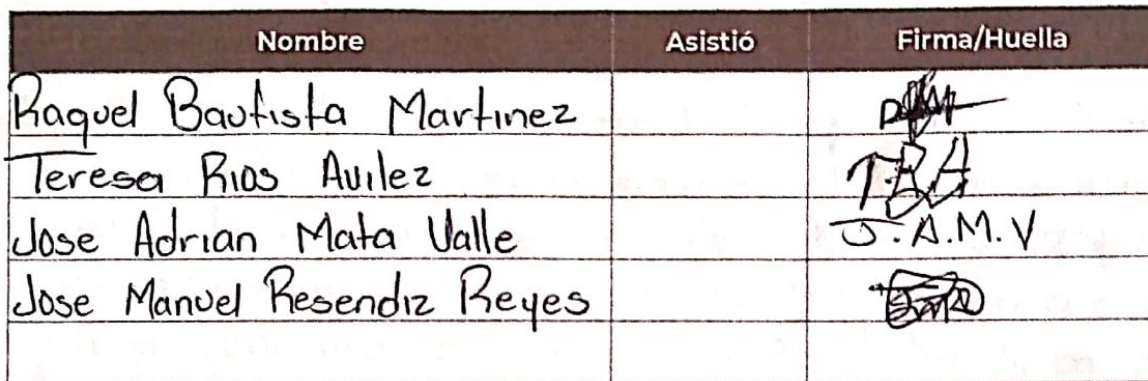 Nombre Asistió Firma/Huella
Raquel Bautista Martinez
Teresa Rios Avilez T.R.A
Jose Adrian Mata Valle J.A.M.V
Jose Manuel Resendiz Reyes